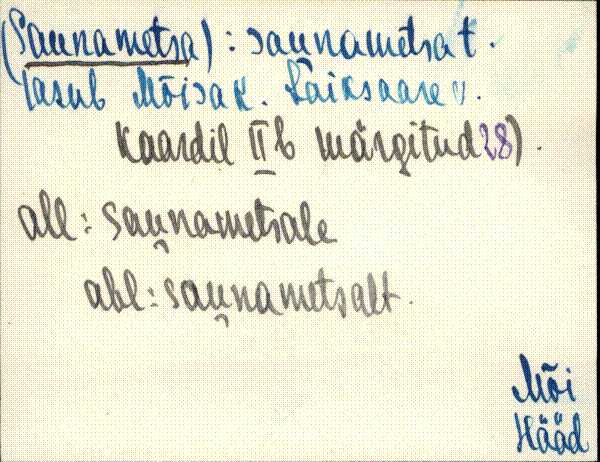 (Saunametsa) : sau̯nametsat.
Tasub Mõisak. Laiksaare v.
Kaardil II b märgitud 28).
all: sau̯nametsale
abl: sau̯nametsalt.
Mõi
Hääd